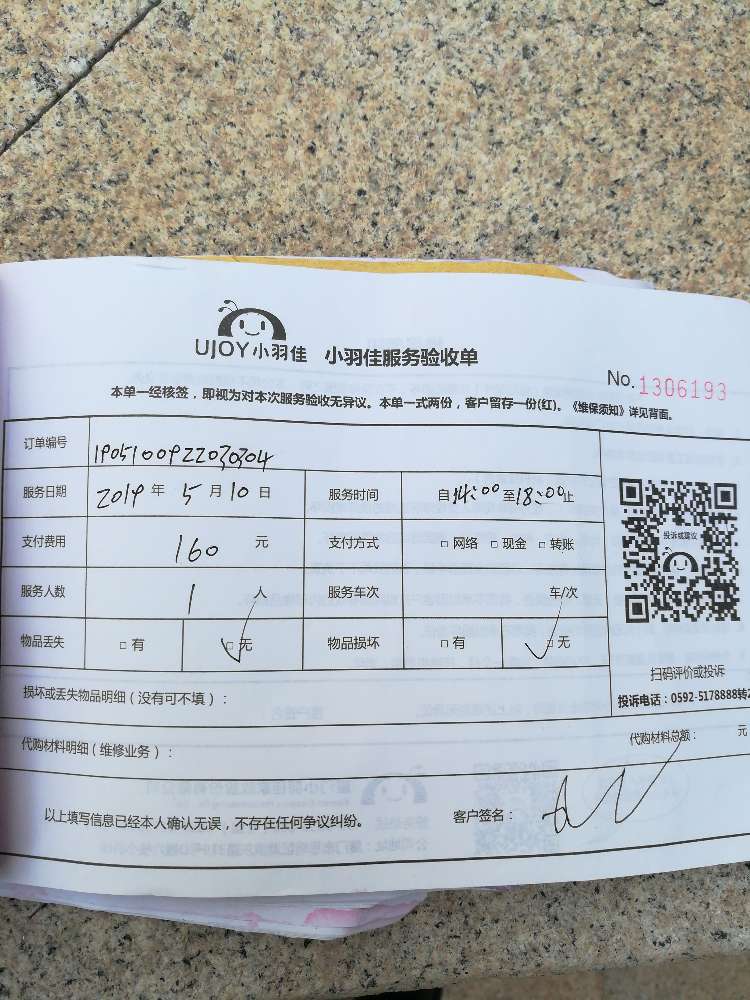 UJOY小羽佳 小羽佳服务验收单
No. 1306193
本单一经核签，即视为对本次服务验收无异议。本单一式两份，客户留存一份(红)。《维保须知》详见背面。
订单编号 1905100922030304
服务日期 2019 年 5 月 10 日 服务时间 自14:00至18:00止
投诉或建议
支付费用 160 元 支付方式 □ 网络 □ 现金 □ 转账
服务人数 1 人 服务车次 车/次
物品丢失 □ 有 □ 无 物品损坏 □ 有 □ 无
扫码评价或投诉
投诉电话：0592-5178888转2
损坏或丢失物品明细（没有可不填）：
代购材料明细（维修业务）： 代购材料总额： 元
以上填写信息已经本人确认无误，不存在任何争议纠纷。 客户签名：